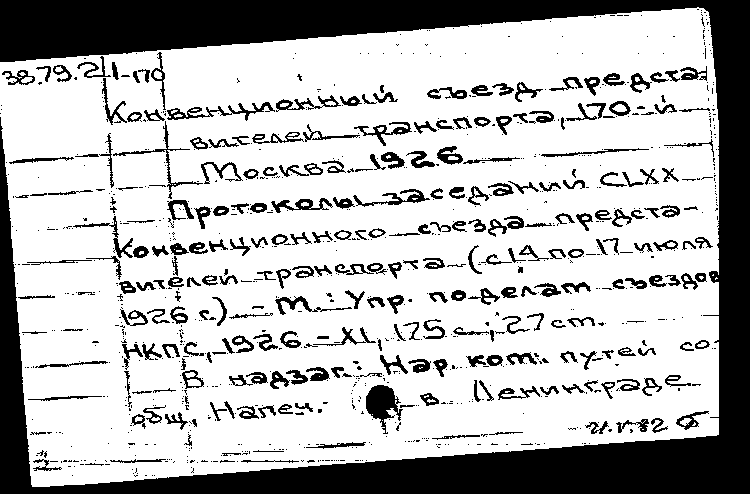 38.79.21-170
Конвенционный съезд предста-
вителей транспорта, 170-й
Москва 1926
Протоколы заседаний CLXX
Конвенционного съезда предста-
вителей транспорта (с 14 по 17 июля
1926 г.) - М.: Упр. по делам съездов
НКПС, 1926. - XI, 175 с.; 27 cm.
В надзаг.: Нар. ком. путей со-
общ. Напеч. в Ленинграде
21.V.82